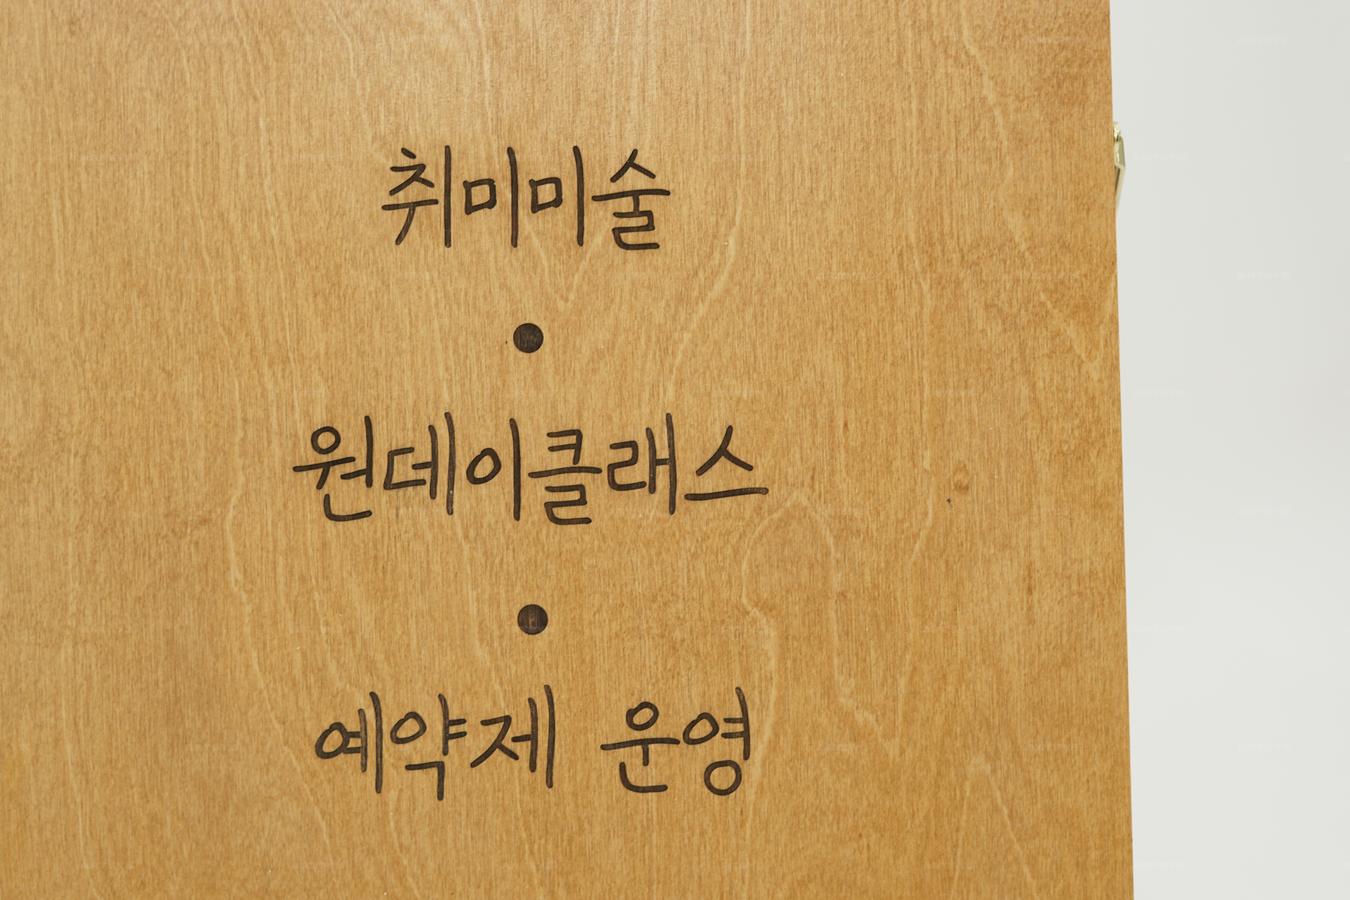 취미미술
•
원데이클래스
•
예약제 운영